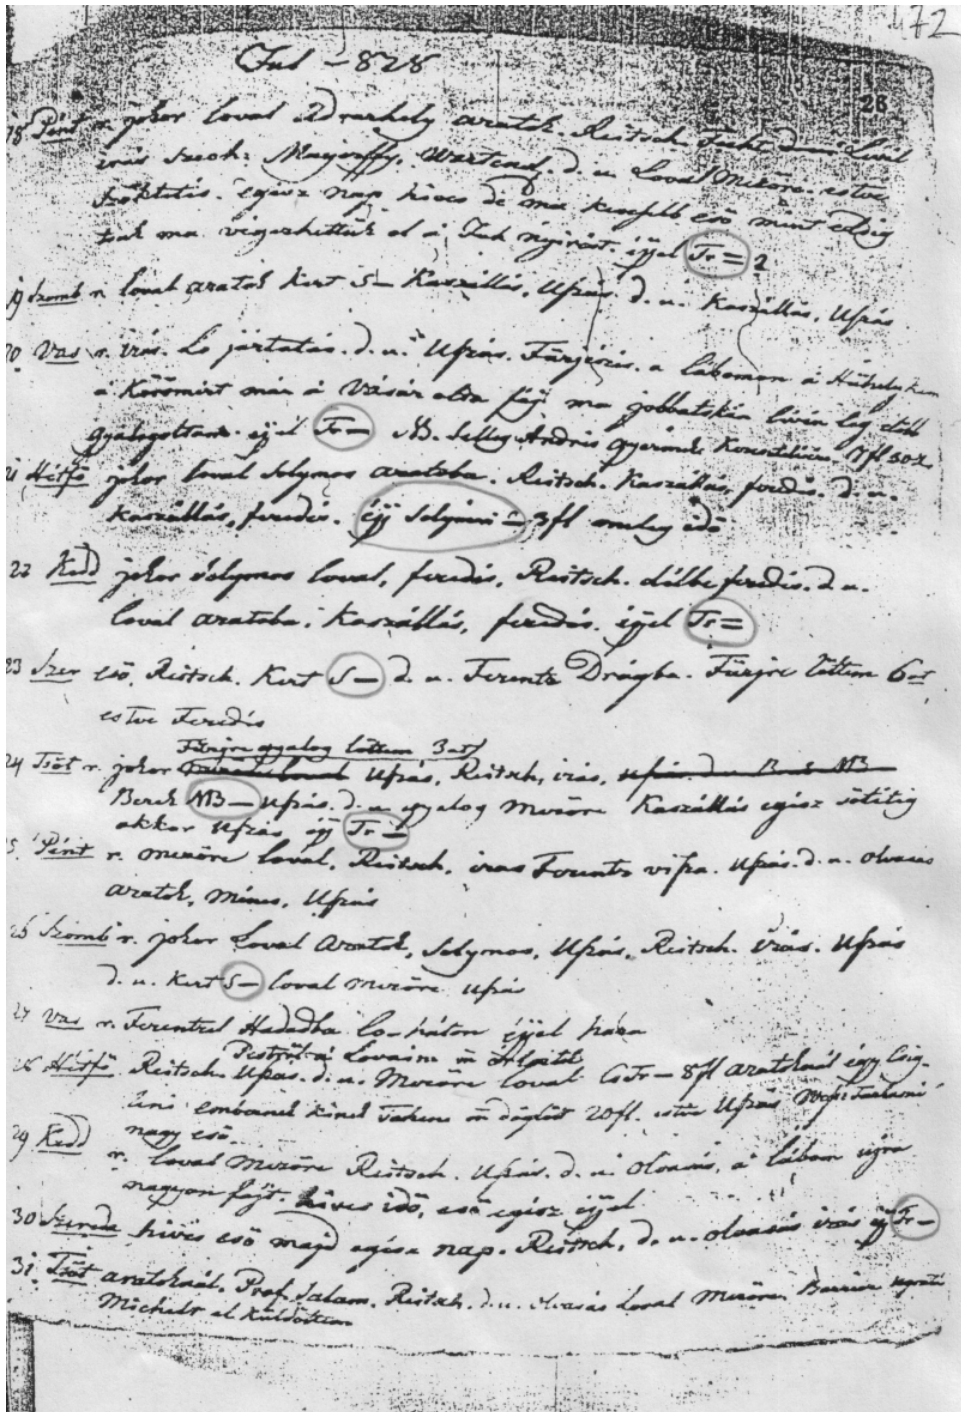 72
Jul - 828
26
18 Pént r. jokor loval Udvarhely aratok. Reitsch. Levél
irás Szeoh: Majorffy. d. u. Loval Mezöre. estve
Szöktetés. egész nap hives de ma kisebb esö mint eddig
tsak ma végezhettük el a Juh nyirást. éjjel Tr = 2
19 Szomb r. loval aratok kert S - Kaszállás, Upás. d. u. Kaszállás, Upás
20 Vas r. irás. Lo jártatás. d. u. Upás. Fürjészés. a lábomon á
á Körömirt már á Vásár olta fáj ma jobbatskán lévén leg elébb
gyalogoltam. éjel Tr - NB. Selleg András gyermek Keresztelésre 7fl 50x
21 Hétfö jokor loval Solymos aratoba. Reitsch. Kaszállás, feredés. d. u.
Kaszállás, feredés. éjj Solymosi = 3fl meleg idö
22 Kedd jokor Solymos loval, feredés, Reitsch. délbe feredés. d. u.
loval aratoba. Kaszállás, feredés. éjjel Tr =
23 Szer esö, Reitsch. Kert S - d. u. Ferentz Drágba. Fürjre löttem 6ot
estve Feredés
Fürjre gyalog löttem 3at
24 Tsöt r. jokor Mezöre loval Upás, Reitsch, irás, upás. d. u. Berek NB -
Berek NB - upás. d. u. gyalog Mezöre Kaszállás egész sötétig
akkor Upás éjj Tr =
25. Pént r. mezöre loval, Reitsch, iras Ferentz visza. Upás. d. u. olvasas
aratok, Upás
26 Szomb r. jokor Loval Aratok, Solymos, Upás, Reitsch. irás. Upás
d. u. Kert S - loval mezöre upás
27 Vas r. Ferentzel Hadadba lo-háton éjjel haza
Lovaim
28 Hétfö. Reitsch. Upas. d. u. Mezöre loval Tr - 8fl aratoknál egy
embernek kinek Tehene döglöt 20fl. estve Upás
nagy esö.
29 Kedd r. loval Mezöre Reitsch. Upás. d. u. olvasás, a lábom ujra
nagyon fájt. hives idö, esö egész éjjel
30 Szereda hives esö majd egész nap. Reitsch, d. u. olvasás irás éj Tr -
31. Tsöt aratoknál. Prof. Salam. Reitsch. d. u. olvasás loval Mezöre
el Küldöttem